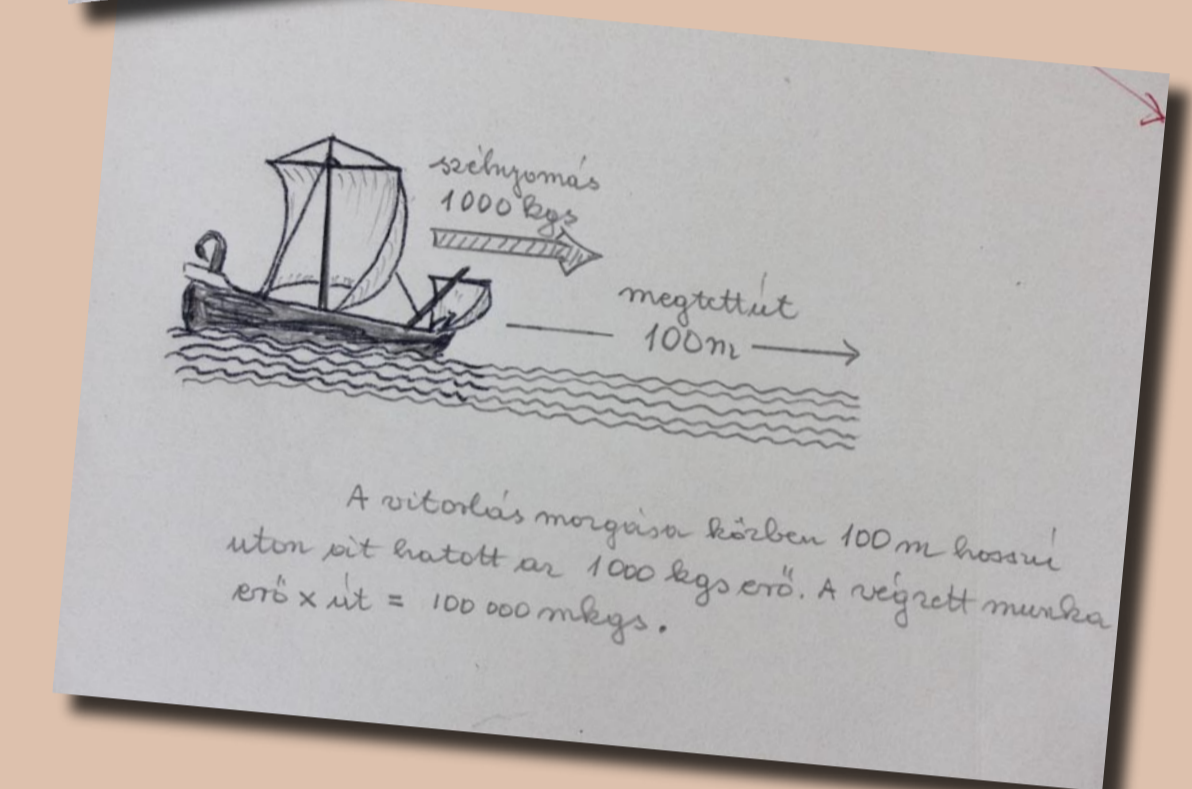 szélnyomás
1000 kgs
megtett út
100m
A vitorlás mozgása közben 100 m hosszú
uton át hatott az 1000 kgs erő. A végzett munka
erő x út = 100 000 mkgs.